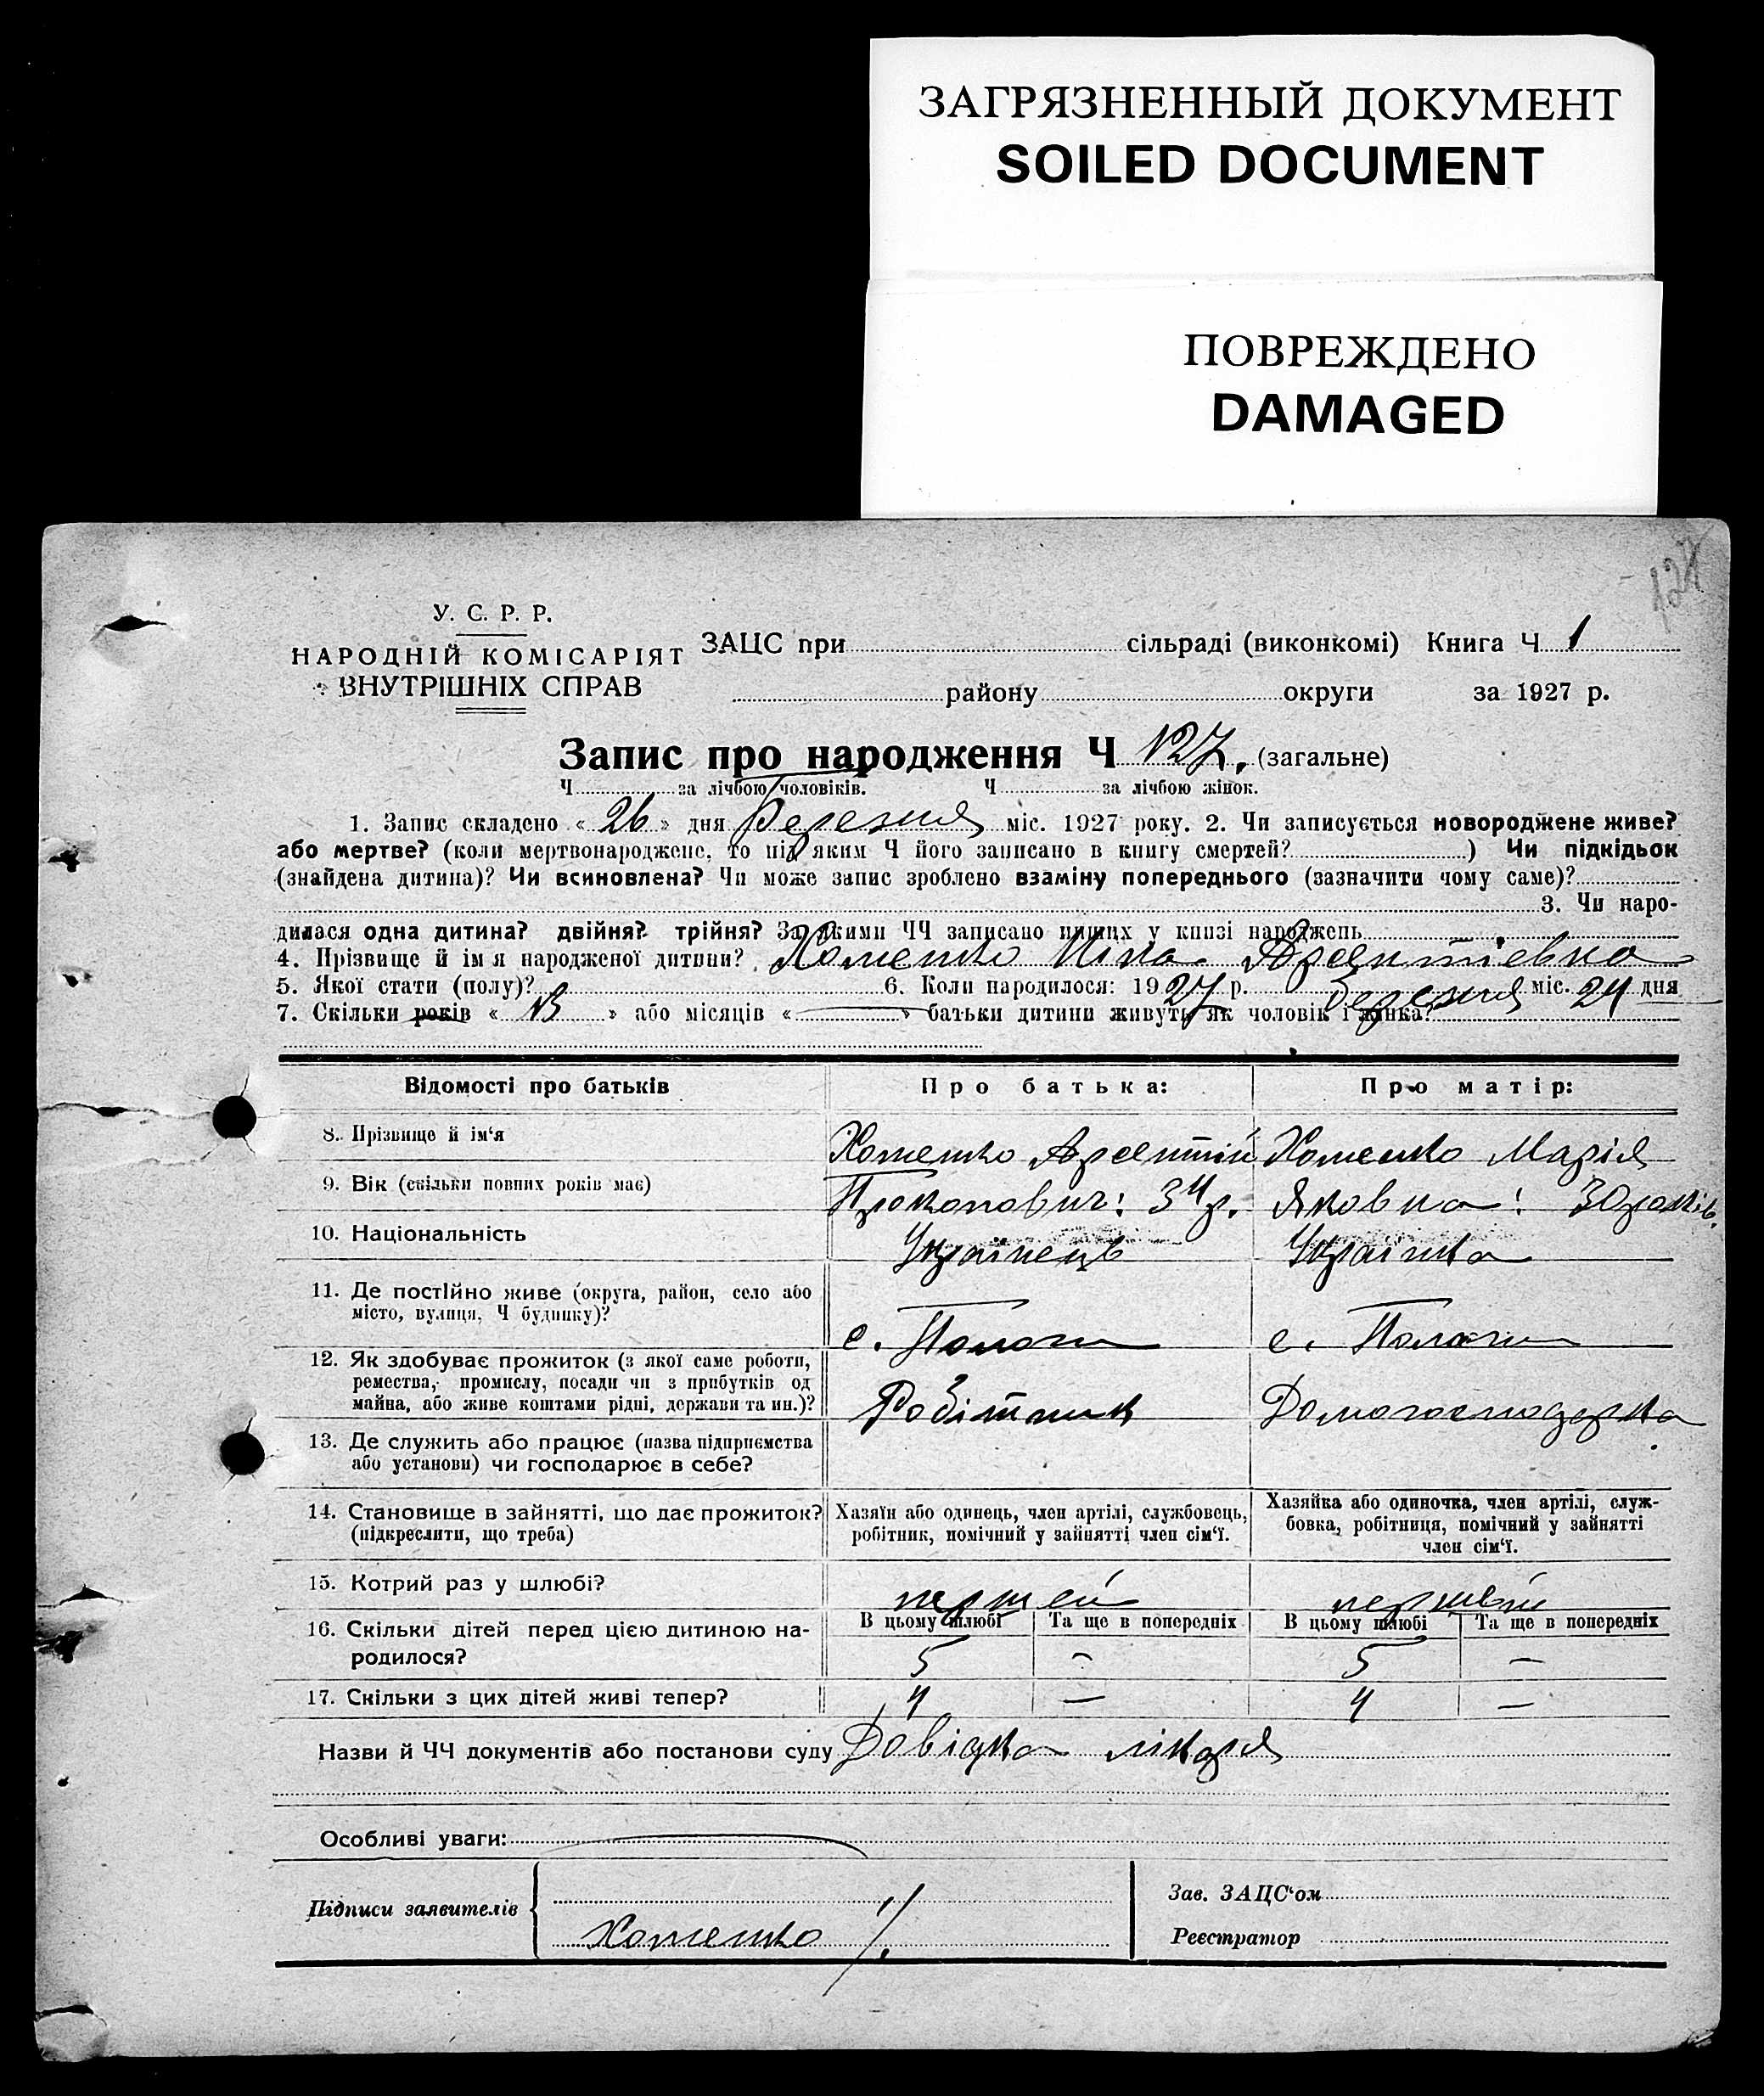 ЗАГРЯЗНЕННЫЙ ДОКУМЕНТ
SOILED DOCUMENT
ПОВРЕЖДЕНО
DAMAGED
У. С. Р. Р.
НАРОДНІЙ КОМІСАРІЯТ
ВНУТРІШНІХ СПРАВ
ЗАЦС при сільраді (виконкомі) Книга Ч 1
району округи за 1927 р.
Запис про народження Ч 127, (загальне)
Ч за лічбою чоловіків. Ч за лічбою жінок.
1. Запис складено « 26 » дня Березня міс. 1927 року. 2. Чи записується новороджене живе?
або мертве? (коли мертвонароджене, то під яким Ч його записано в книгу смертей? ) Чи підкідьок
(знайдена дитина)? Чи всиновлена? Чи може запис зроблено взаміну попереднього (зазначити чому саме)?
3. Чи наро-
дилася одна дитина? двійня? трійня? За якими ЧЧ записано инших у книзі народжень
4. Прізвище й ім я народженої дитини? Хоменко Ніна Арсентіевна
5. Якої стати (полу)? 6. Коли народилося: 1927 р. березня міс. 24 дня
7. Скільки років « 13 » або місяців « — » батьки дитини живуть як чоловік і жінка?
Відомості про батьків Про батька: Про матір:
8. Прізвище й ім‘я Хоменко Арсентій Хоменко Марія
9. Вік (скільки повних років має) Прокопович: 34 р. Яковна: 30 років.
10. Національність Українець Українка
11. Де постійно живе (округа, район, село або
місто, вулиця, Ч будинку)? с. Пологи с. Пологи
12. Як здобуває прожиток (з якої саме роботи,
ремества, промислу, посади чи з прибутків од
майна, або живе коштами рідні, держави та ин.)? Робітник Домогосподарка
13. Де служить або працює (назва підприємства
або установи) чи господарює в себе?
14. Становище в зайнятті, що дає прожиток? Хазяїн або одинець, член артілі, службовець, Хазяйка або одиночка, член артілі, служ-
(підкреслити, що треба) робітник, помічний у зайнятті член сім‘ї. бовка, робітниця, помічний у зайнятті
член сім‘ї.
15. Котрий раз у шлюбі? першей первий
16. Скільки дітей перед цією дитиною на- В цьому шлюбі Та ще в попередніх В цьому шлюбі Та ще в попередніх
родилося? 5 — 5 —
17. Скільки з цих дітей живі тепер? 4 — 4 —
Назви й ЧЧ документів або постанови суду Довідка лікаря
Особливі уваги:
Підписи заявителів Хоменко
Зав. ЗАЦС‘ом
Реєстратор